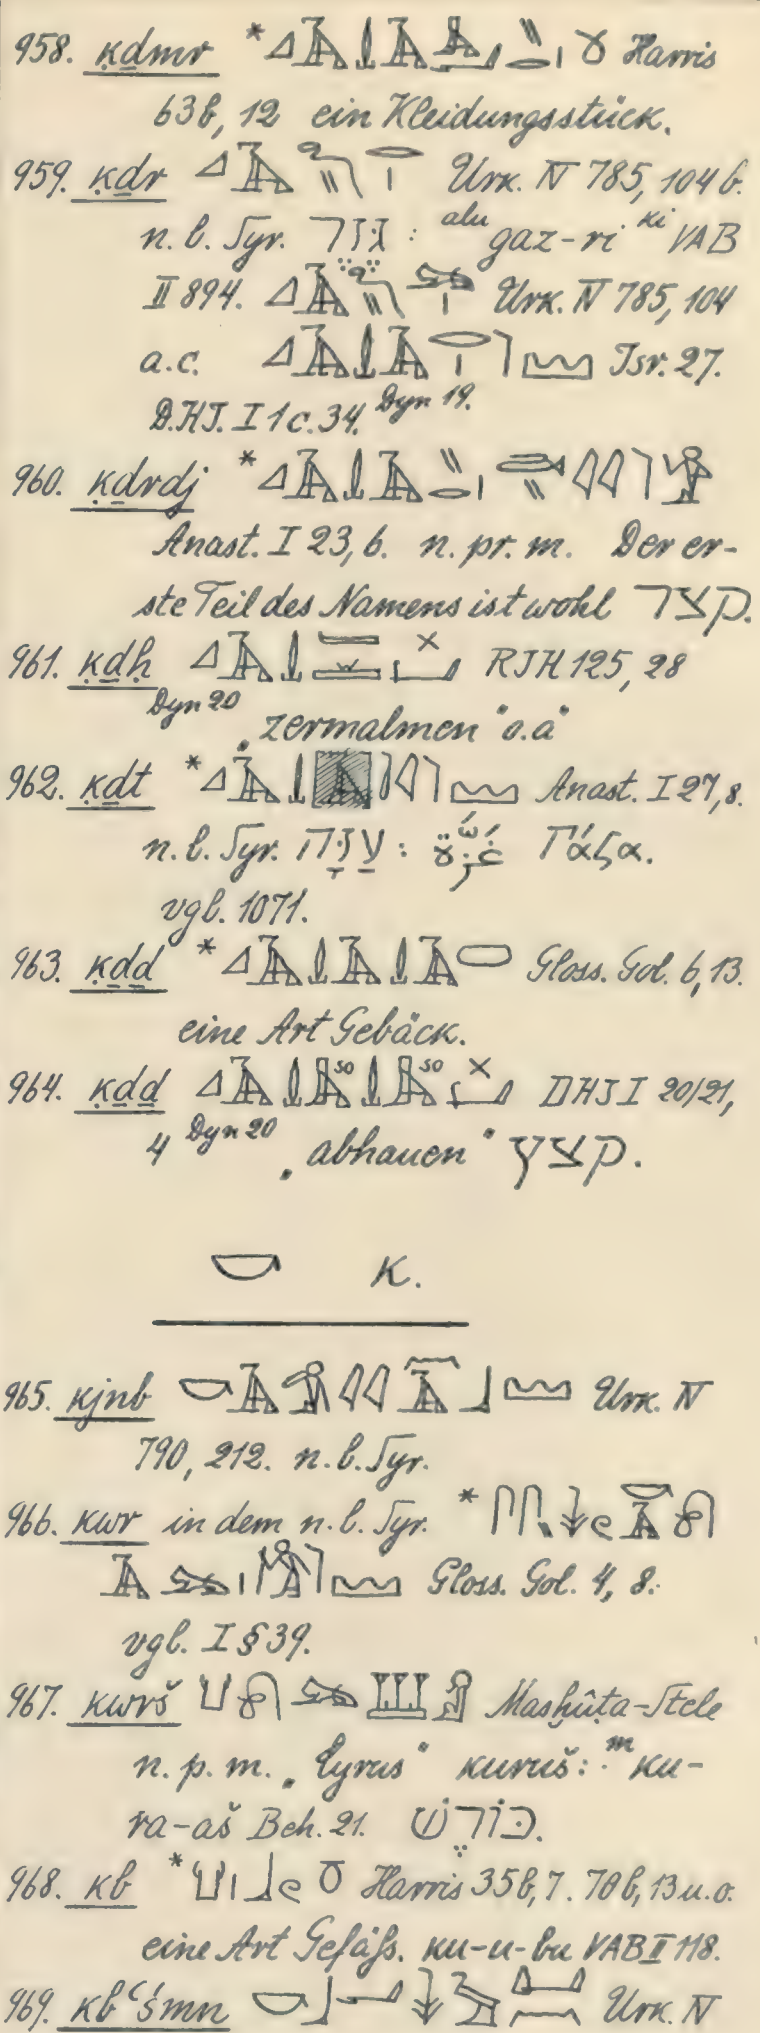 958. ḳḏmr * Harris
63b, 12 ein Kleidungsstück.
959. ḳḏr Urk. IV 785, 104 b.
n. l. Syr. גֶּזֶר : alu gaz-ri ki VAB
II 894. Urk. IV 785, 104
a.c. Isr. 27.
D.H.I. I 1c. 34. Dyn 19.
960. ḳḏrdj *
Anast. I 23, 6. n. pr. m. Der er-
ste Teil des Namens ist wohl קצר.
961. ḳḏḥ RIH 125, 28
Dyn 20 „zermalmen" o.ä
962. ḳḏt * Anast. I 27, 8.
n. l. Syr. עַזָּה : غَزَّة Γάζα.
vgl. 1071.
963. ḳḏḏ * Gloss. Gol. 6, 13.
eine Art Gebäck.
964. ḳḏḏ DHI I 20/21,
4 Dyn 20 „abhauen" קצץ.
K.
965. kjnb Urk. IV
790, 212. n. l. Syr.
966. kwr in dem n. l. Syr. *
Gloss. Gol. 4, 8.
vgl. I § 39.
967. kwrš Masḫûṭa-Stele
n. p. m. „Cyrus" kuruš: m ku-
ra-aš Beh. 21. כּוֹרֶשׁ.
968. kb * Harris 35b, 7. 70b, 13 u.o.
eine Art Gefäfs. ku-u-bu VAB II 118.
969. kbꜥśmn Urk. IV